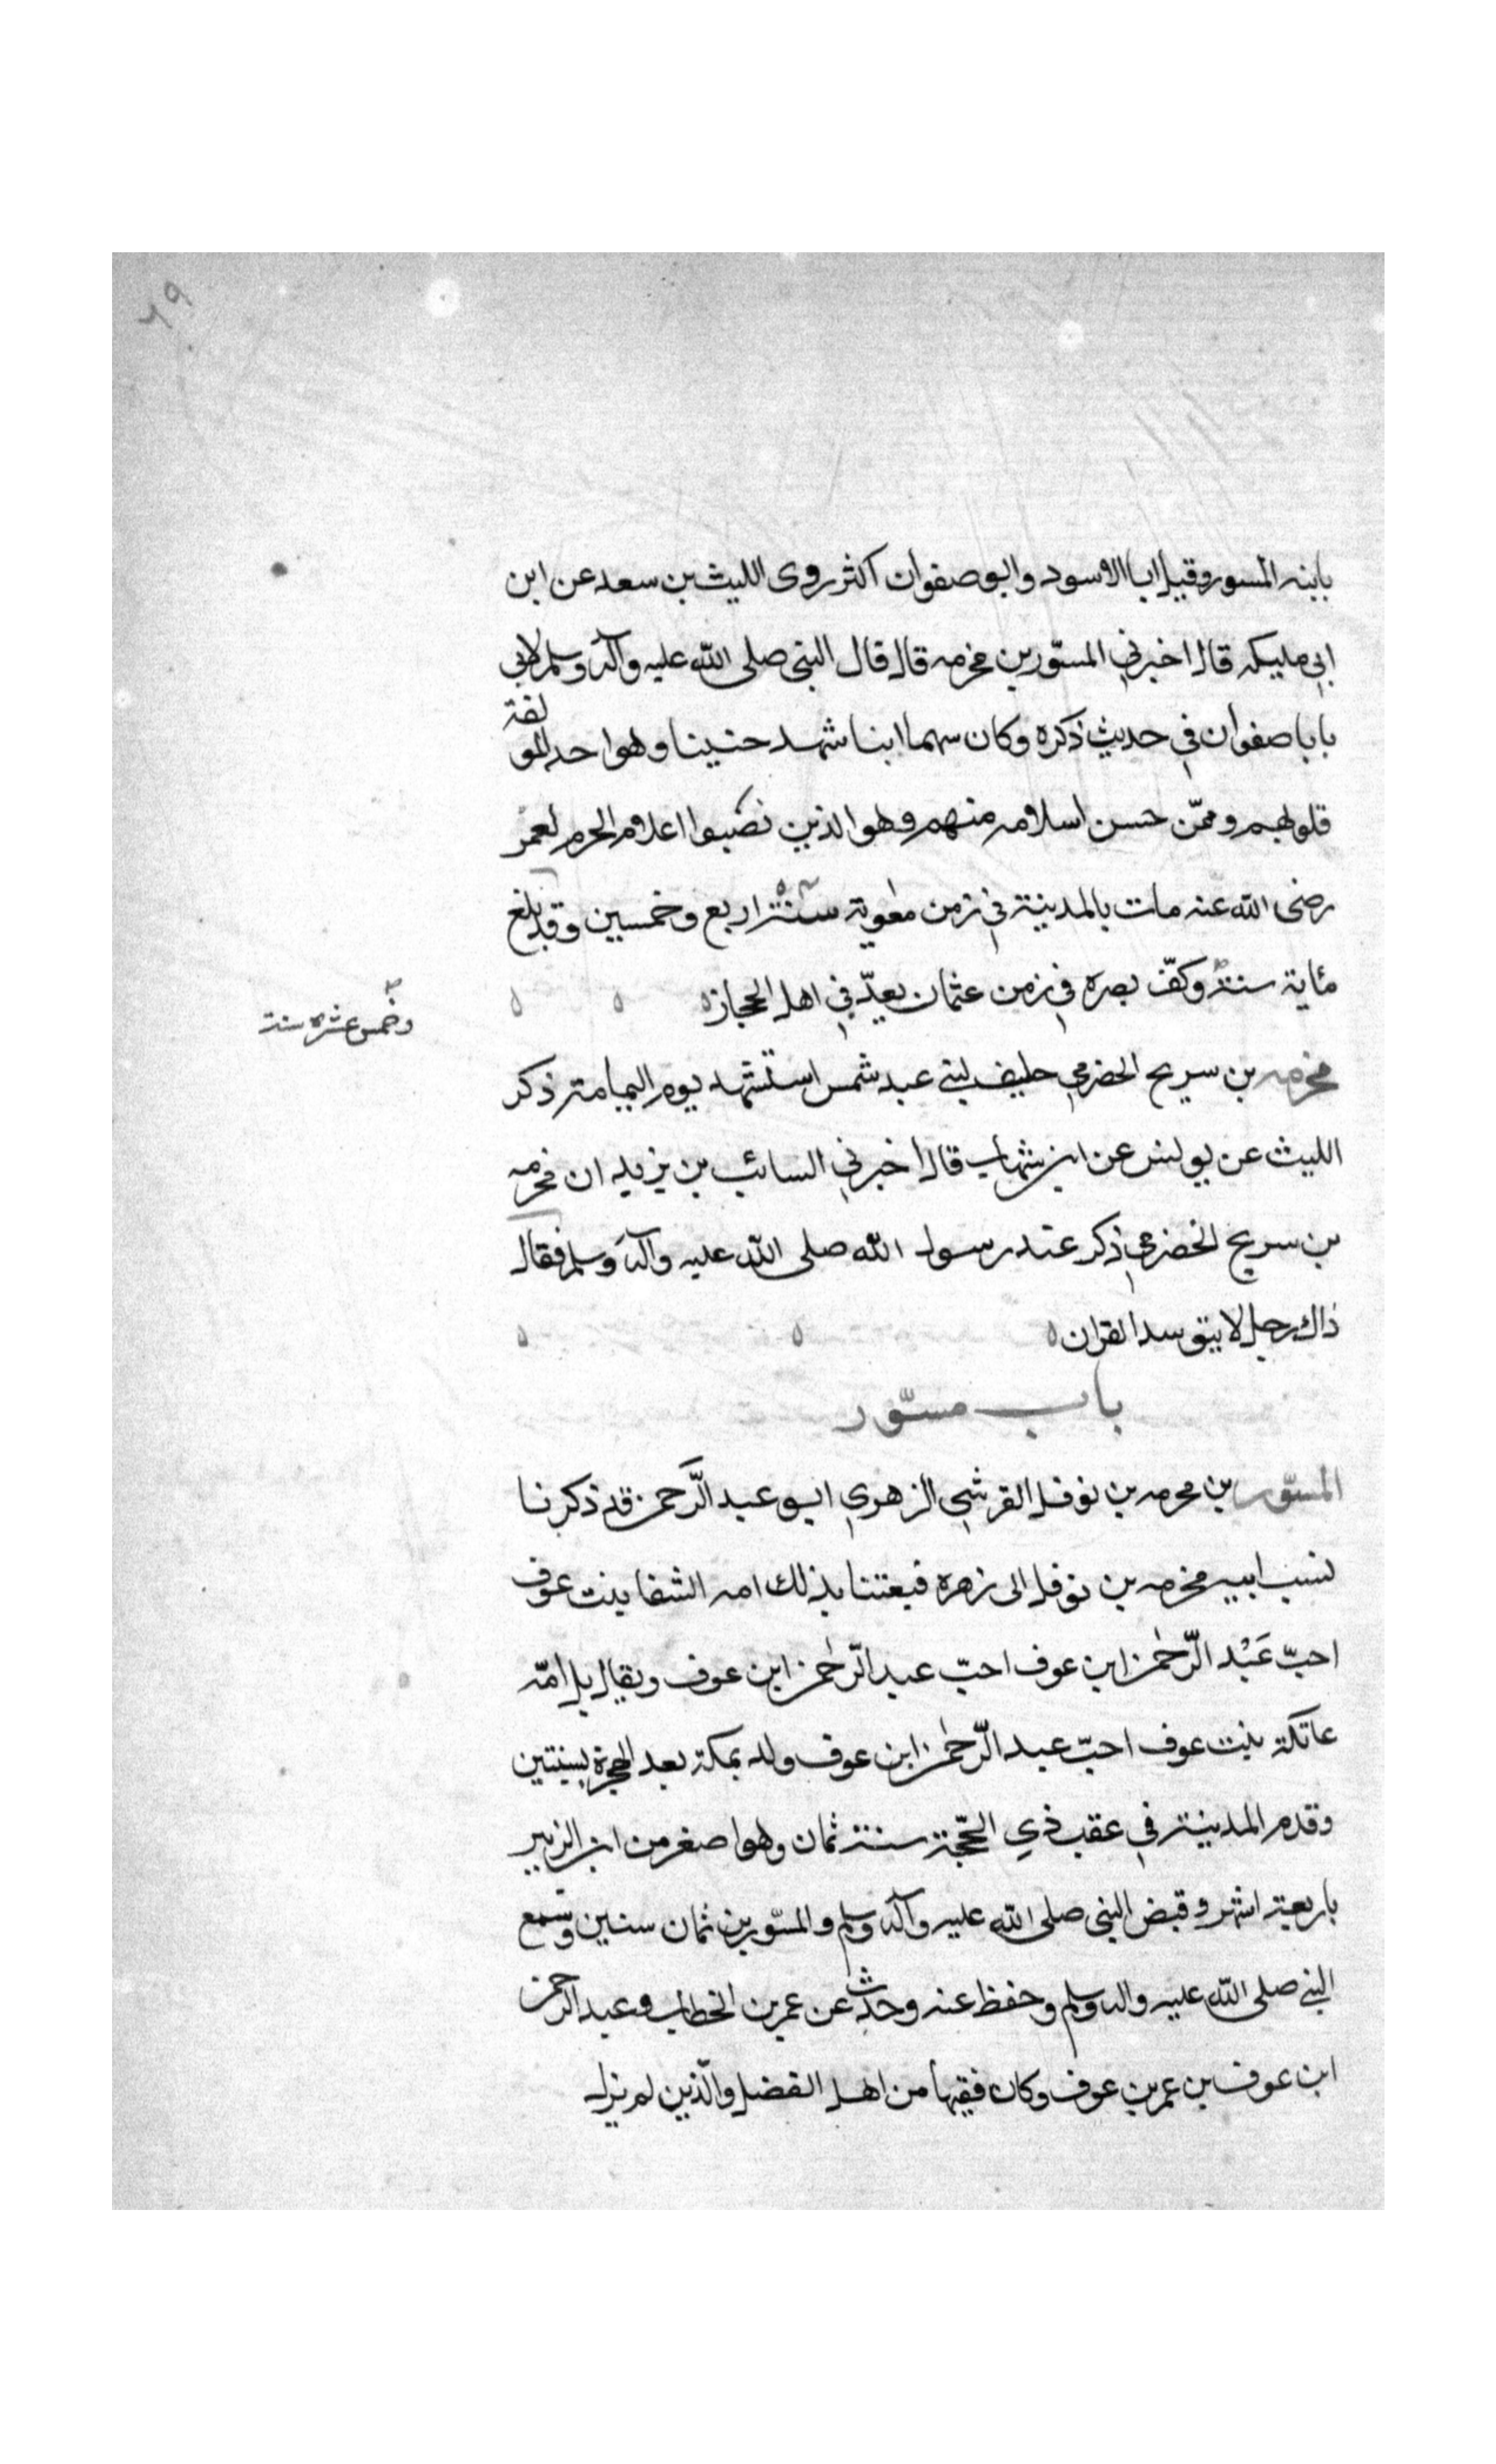 ٦٩
بابنه المسور وقيل ابا الاسود وابو صفوان اكثر روى الليث بن سعد عن ابن
ابي مليكه قال اخبرني المسّور بن مخرمه قال قال النبى صلى الله عليه وآله وسلم لابي
يابا صفوان في حديث ذكره وكان سهما ابنا شهد حنينا وهو احد المولفة
قلوبهم وممّن حسن اسلامه منهم وهو الذين نصبوا اعلام الحرم لعمر
رضى الله عنه مات بالمدينة في زمن معوية سنة اربع وخمسين وقد بلغ
مئاية سنة وكفّ بصره في زمن عثمان يعدّ في اهل الحجاز
وخمس عشره سنة
مخرمه بن سريح الحضرمي حليف لبني عبد شمس استشهد يوم اليمامة ذكر
الليث عن يونس عن ابن شهاب قال اخبرني السائب بن يزيد ان مخرمه
بن سريح الحضرمي ذكر عند رسول الله صلى الله عليه وآله وسلم فقال
ذاك رجل لا يتوسد القران
باب مسّور
المسّور بن مخرمه بن نوفل القرشي الزهري ابو عبد الرّحمن قد ذكرنا
نسب ابيه مخرمه بن نوفل الى زهره فبعتنا بذلك امه الشفا بنت عوف
احبّ عَبْد الرّحمٰن ابن عوف احبّ عبد الرّحمٰن ابن عوف ويقال بل امّه
عاتكة بنت عوف احبّ عبد الرّحمٰن ابن عوف ولد بمكة بعد الهجرة بسنتين
وقدم المدينة في عقب ذي الحّجة سنة ثمان وهو اصغر من ابن الزبير
باربعة اشهر وقبض النبى صلى الله عليه وآله وسلم والمسّور بن ثمان سنين وسمع
النبي صلى الله عليه واله وسلم وحفظ عنه وحدّث عن عمر بن الخطاب وعبد الرحمن
ابن عوف بن عمر بن عوف وكان فقيها من اهل الفضل والّذين لم يزل